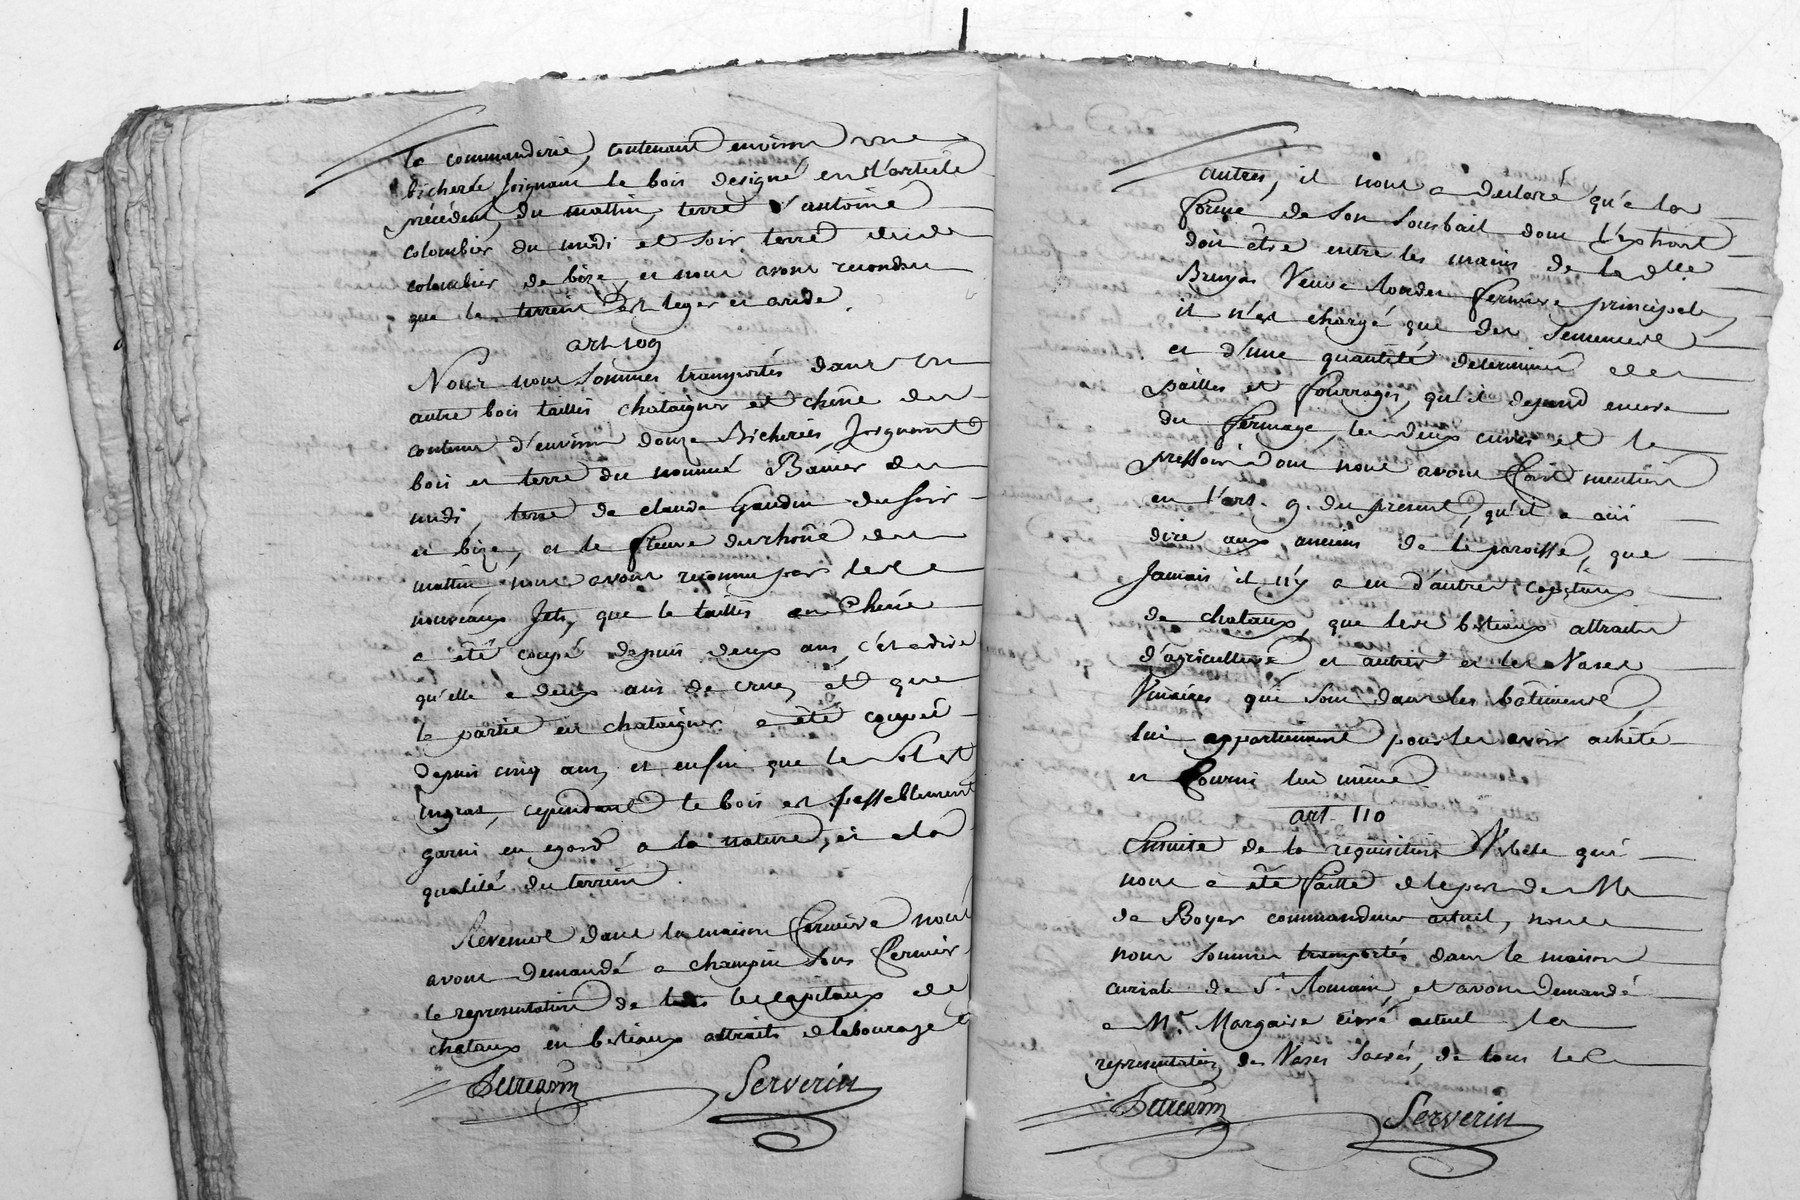 la commanderie, contenant environ une
bicherée joignant le bois designé en l'article
précédent du mattin, terre d'antoine
colombier du midi et soir, terre dudt
colombier de bize, et nous avons reconnu
que le terrein est leger et aride.
art 109
Nous nous sommes transportés dans un
autre bois taillis chataigner et chêne de
contenue d'environ douze Bicherées, Joignant
bois et terre du nommé du
midi, terre de claude Gaudin du soir
et bize, et le fleuve du rhône du
mattin, nous avons reconnu par les
nouveaux Jets, que le taillis en chêne
a été coupé depuis deux ans, c'est a dire
qu'elle a deux ans de crue, et que
la partie en chataigner a été coupée
depuis cinq ans, et enfin que le sol est
ingrat, cependant le bois est passablement
garni eu egard a la nature, et a la
qualité du terrein.
Revenus dans la maison fermière nous
avons demandé a champin sous fermier
la representation de tous les capitaux de
chataux en bestiaux attraits de labourage
Serverin
autres, il nous a declaré qu'a la
forme de son sousbail dont l'extrait
doit être entre les mains de la dlle
Bruyas Veuve fermiere principale,
il n'est chargé que des semences
et d'une quantité determinée de
pailles et fourrages, qu'il depend encore
du fermage, les deux cuves et le
pressoir dont nous avons fait mention
en l'art. 9. du present, qu'il a oüi
dire aux anciens de la paroisse, que
Jamais il n'y a eu d'autres capitaux
de chataux, que les bestiaux attraits
d'agriculture et autres et les Vases
Vinaires qui sont dans les bâtiments,
lui appartiennent pour les avoir acheté
et fourni lui même.
art. 110
Ensuite de la requisition Verbale qui
nous a été faitte de la part de Mr
de Boyer commandeur actuel, nous
nous sommes transportés dans la maison
curiale de St. Romain, et avons demandé
a Mr. Margaire curé actuel la
representation des Vases sacrés, de tous les
Serverin